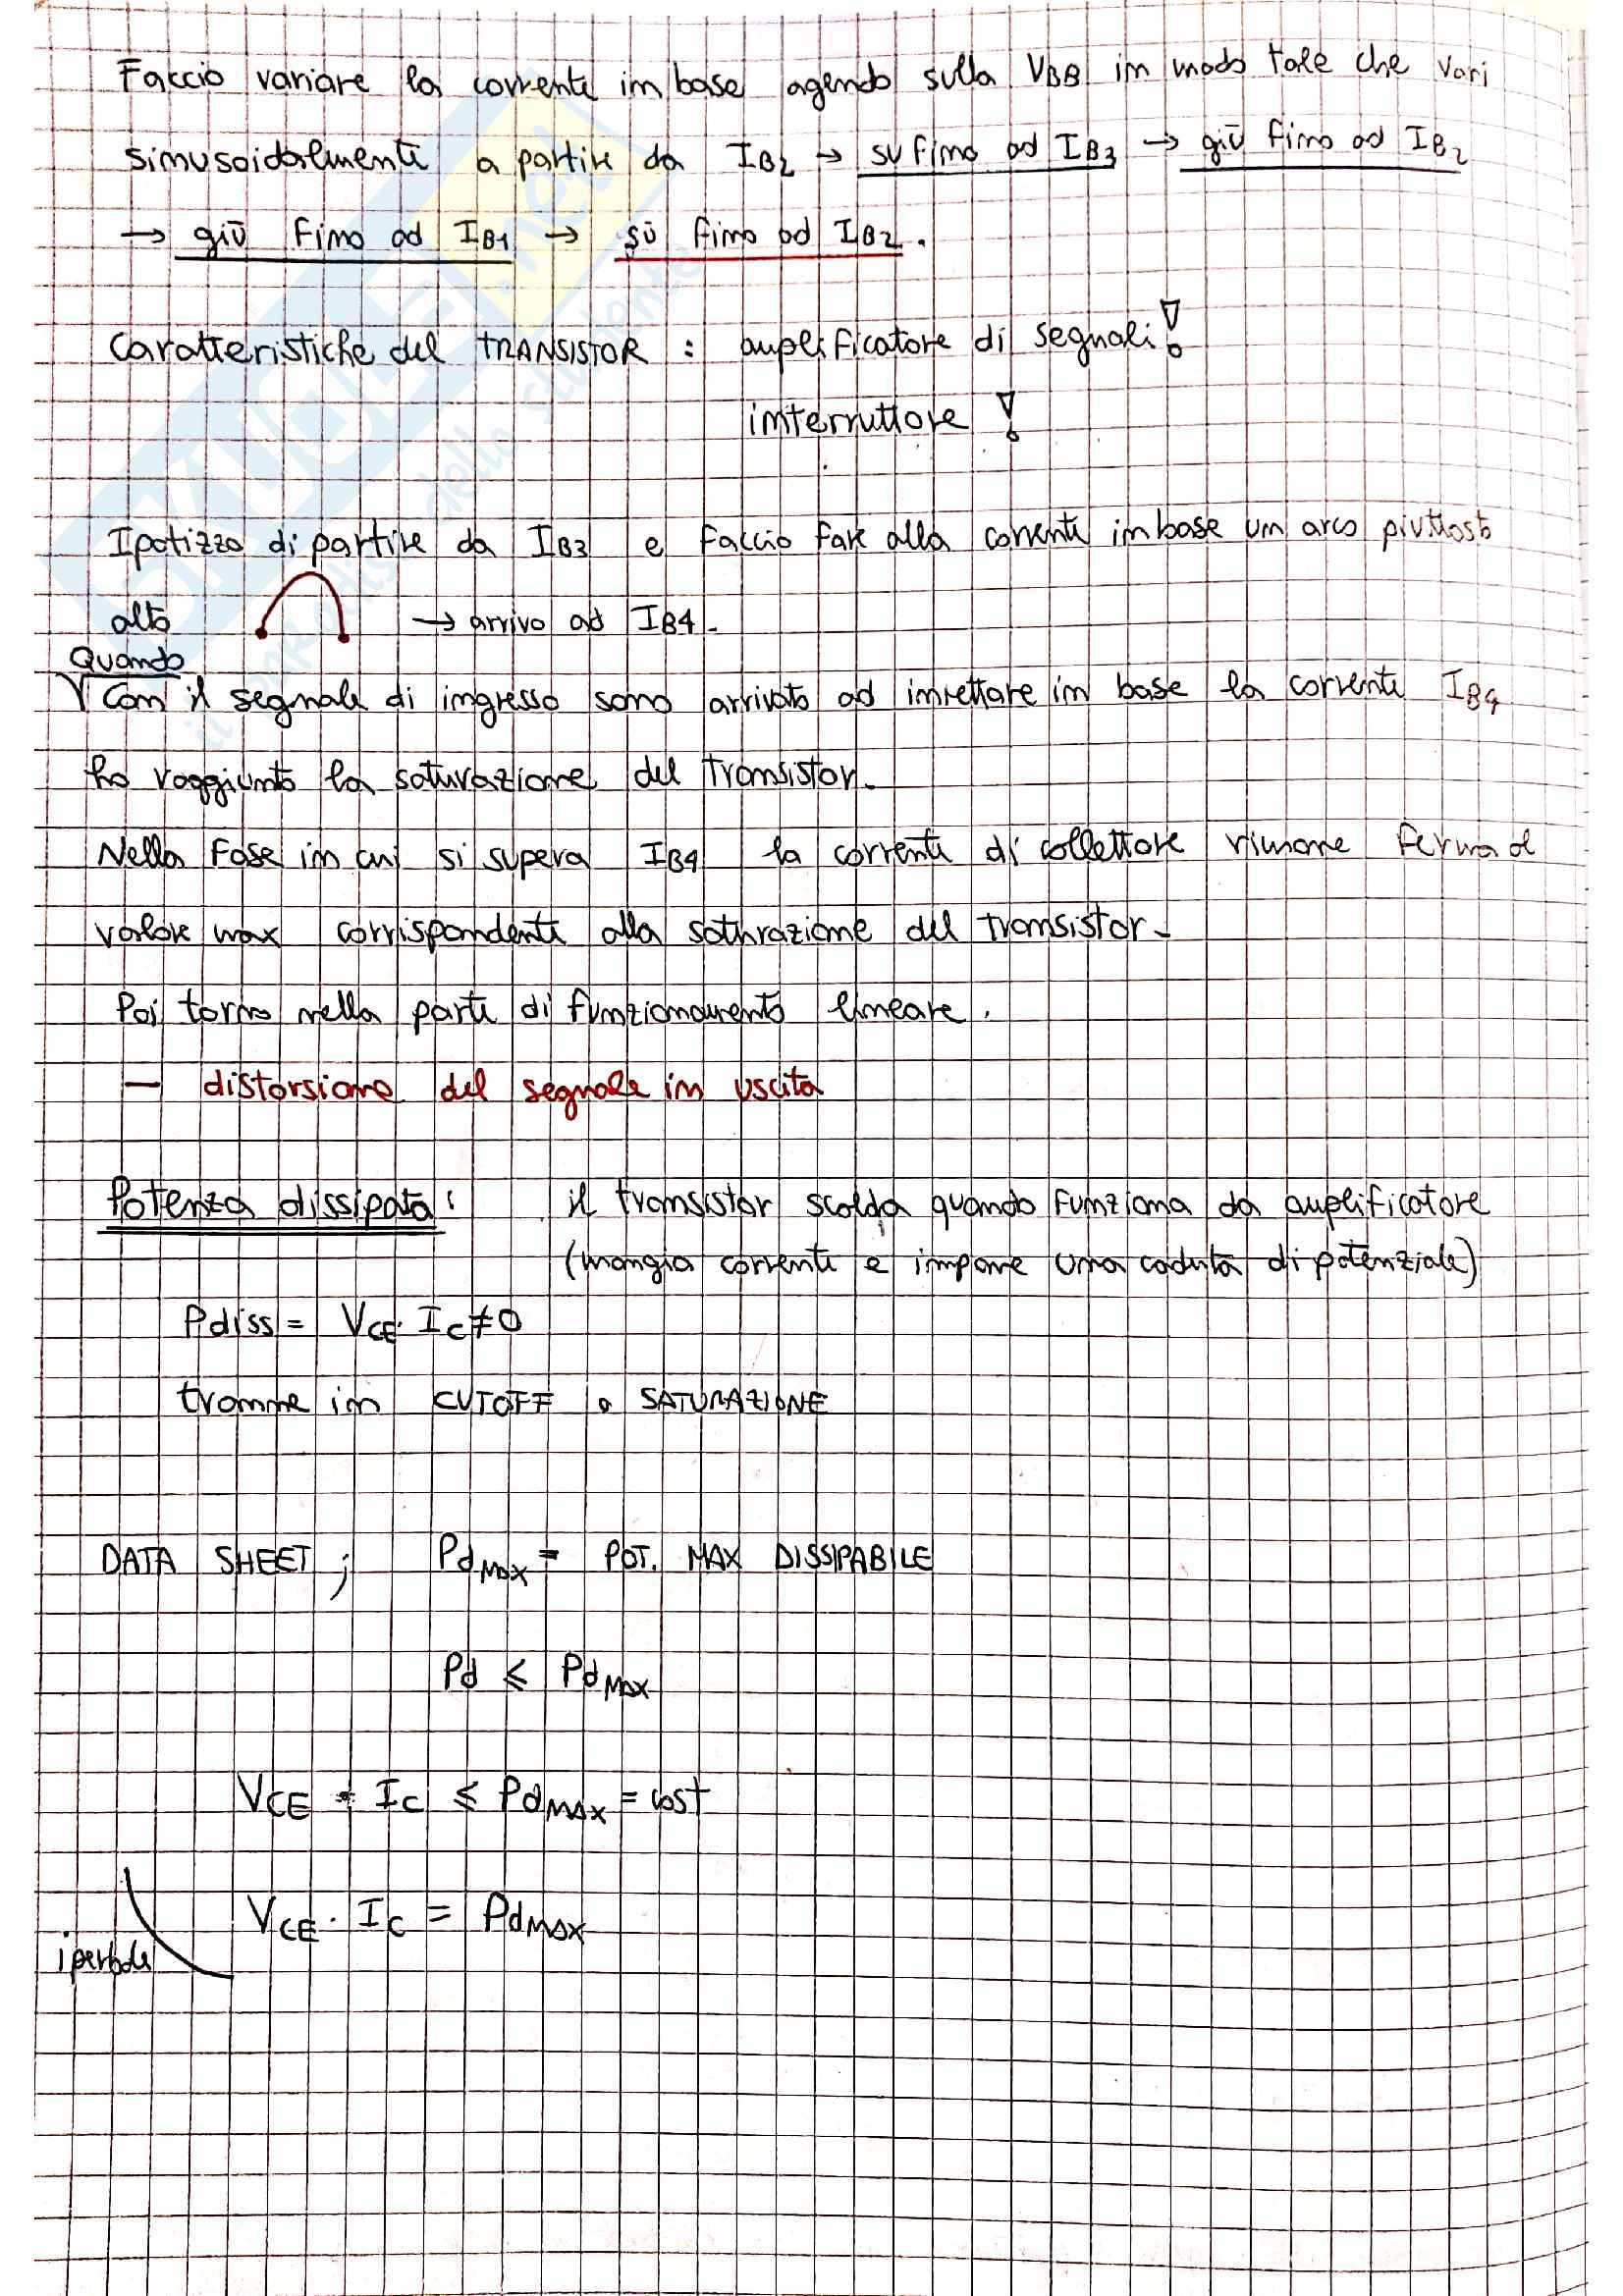 Faccio variare la corrente in base agendo sulla VBB in modo tale che vari
sinusoidalmente a partire da IB2 → su fino ad IB3 → giù fino ad IB2
→ giù fino ad IB1 → sù fino ad IB2.
Caratteristiche del TRANSISTOR : amplificatore di segnali!
interruttore !
Ipotizzo di partire da IB3 e faccio fare alla corrente in base un arco piuttosto
alto → arrivo ad IB4.
Quando
Con il segnale di ingresso sono arrivato ad iniettare in base la corrente IB4
ho raggiunto la saturazione del transistor.
Nella fase in cui si supera IB4 la corrente di collettore rimane ferma al
valore max corrispondente alla saturazione del transistor.
Poi torno nella parte di funzionamento lineare.
— distorsione del segnale in uscita
Potenza dissipata: il transistor scalda quando funziona da amplificatore
(mangia corrente e impone una caduta di potenziale)
Pdiss = VCE · IC ≠ 0
tranne in CUTOFF o SATURAZIONE
DATA SHEET ; PdMAX = POT. MAX DISSIPABILE
Pd ≤ PdMAX
VCE · IC ≤ PdMAX = cost
VCE · IC = PdMAX
iperbole
SKUOLA.net
il paradiso dello studente